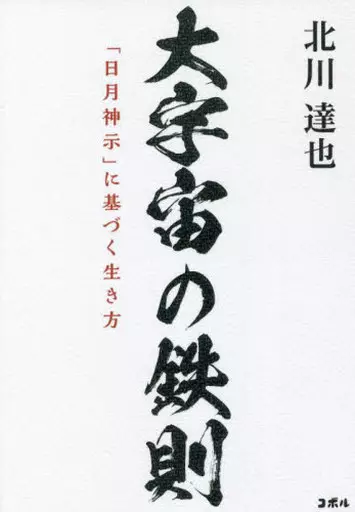 北川達也
大宇宙の鉄則
「日月神示」に基づく生き方
コボル